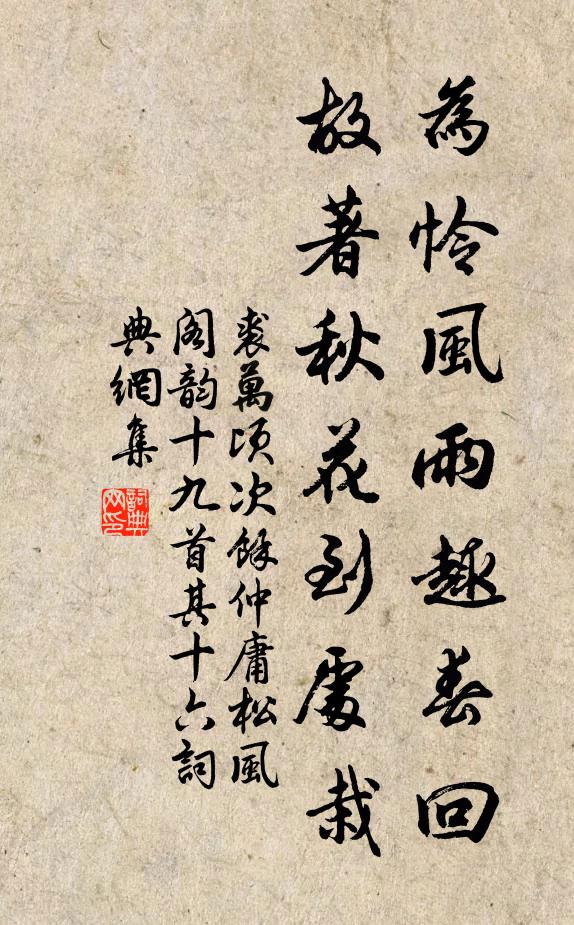 為憐風雨趣春回
故著秋花到處栽
裘萬頃次餘仲庸松風
閣韵十九首其十六詞
典網集
詞典網印